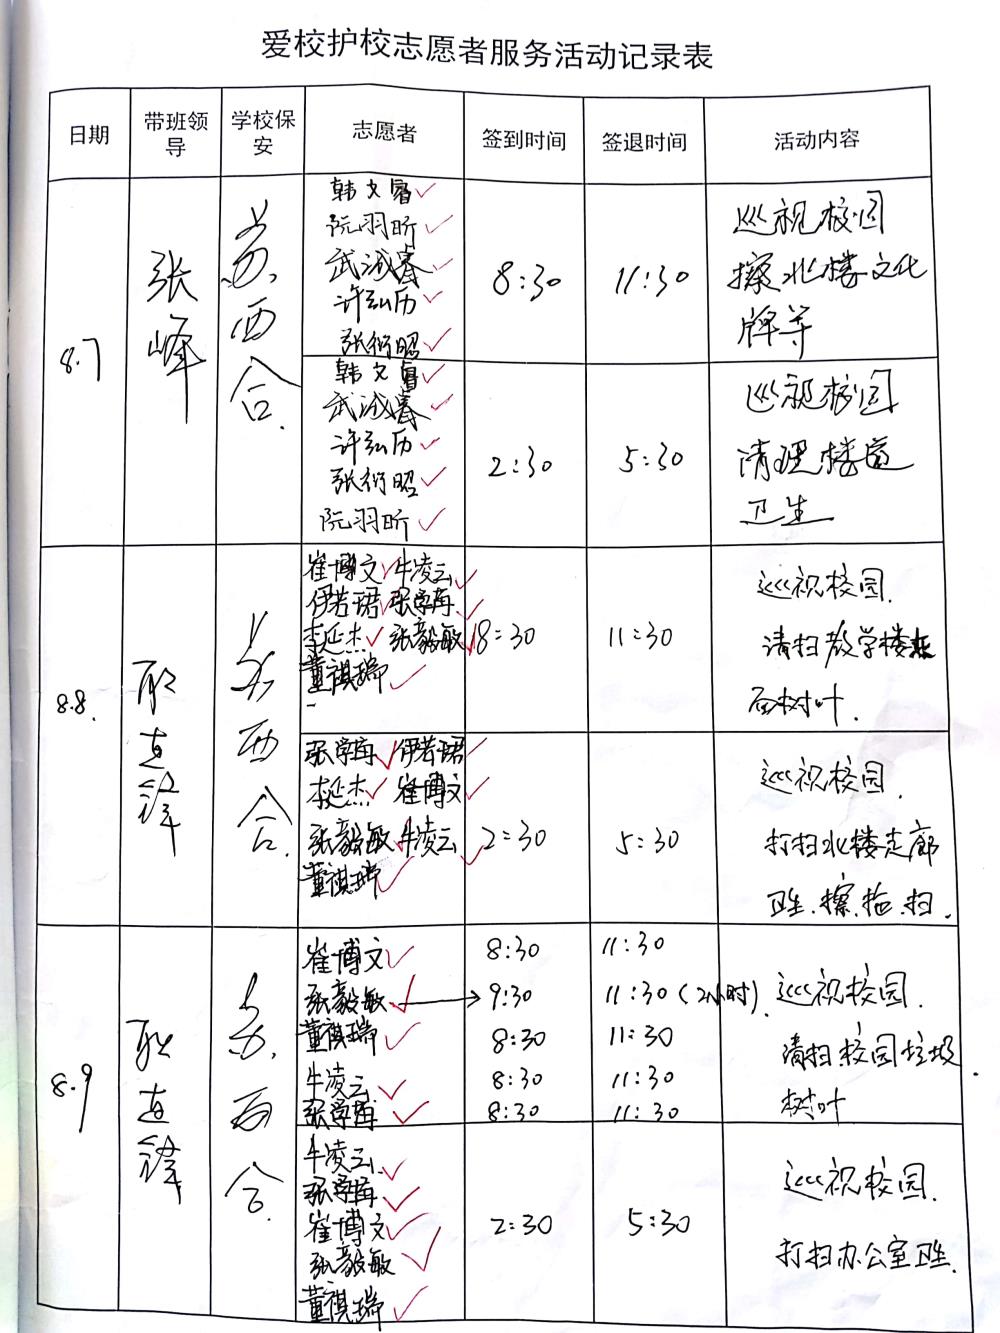 爱校护校志愿者服务活动记录表
日期 带班领导 学校保安 志愿者 签到时间 签退时间 活动内容
8.7 张峰 西合
韩文
阮羽昕
武诚睿
许弘历
张衍昭
8:30 11:30
巡视校园
擦北楼文化
牌等
韩文
武诚睿
许弘历
张衍昭
阮羽昕
2:30 5:30
巡视校园
清理楼道
卫生
8.8. 连锋 西合.
崔博文 牛凌云
伊若珺 张学
李延杰 张毅敏
董祺瑞
8:30 11:30
巡视校园.
清扫教学楼东
面树叶.
张学 伊若珺
李延杰 崔博文
张毅敏 牛凌云
董祺瑞
2:30 5:30
巡视校园.
打扫北楼走廊
卫生.擦.拖.扫.
8.9 连锋 西合.
崔博文 8:30 11:30
张毅敏 → 9:30 11:30(2小时).
董祺瑞 8:30 11:30
牛凌云 8:30 11:30
张学 8:30 11:30
巡视校园.
清扫校园垃圾.
树叶
牛凌云
张学
崔博文
张毅敏
董祺瑞
2:30 5:30
巡视校园.
打扫办公室卫生.